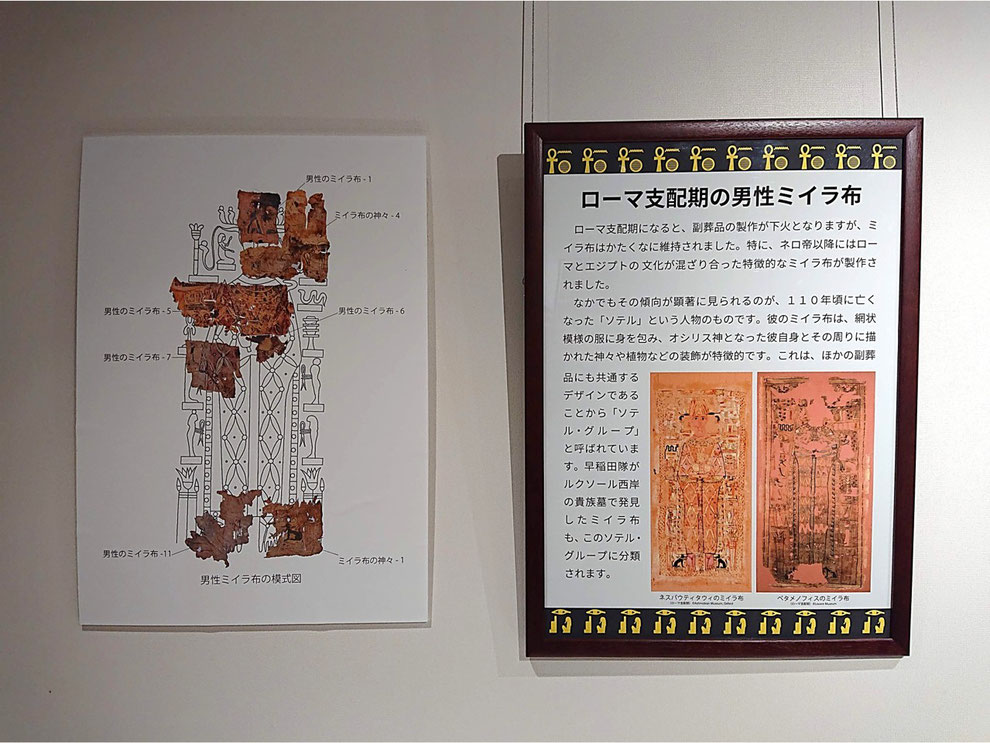 男性のミイラ布 - 1
ミイラ布の神々 - 4
男性のミイラ布 - 5
男性のミイラ布 - 6
男性のミイラ布 - 7
男性のミイラ布 -11
ミイラ布の神々 - 1
男性ミイラ布の模式図
ローマ支配期の男性ミイラ布
ローマ支配期になると、副葬品の製作が下火となりますが、ミ
イラ布はかたくなに維持されました。特に、ネロ帝以降にはロー
マとエジプトの 文化が混ざり合った特徴的なミイラ布が製作さ
れました。
なかでもその傾向が顕著に見られるのが、１１０年頃に亡く
なった「ソテル」という人物のものです。彼のミイラ布は、網状
模様の服に身を包み、オシリス神となった彼自身とその周りに描
かれた神々や植物などの装飾が特徴的です。これは、ほかの副葬
品にも共通する
デザインである
ことから「ソテ
ル・グループ」
と呼ばれていま
す。早稲田隊が
ルクソール西岸
の貴族墓で発見
したミイラ布
も、このソテル・
グループに分類
されます。
ネスパウティタウィのミイラ布
ペタメノフィスのミイラ布